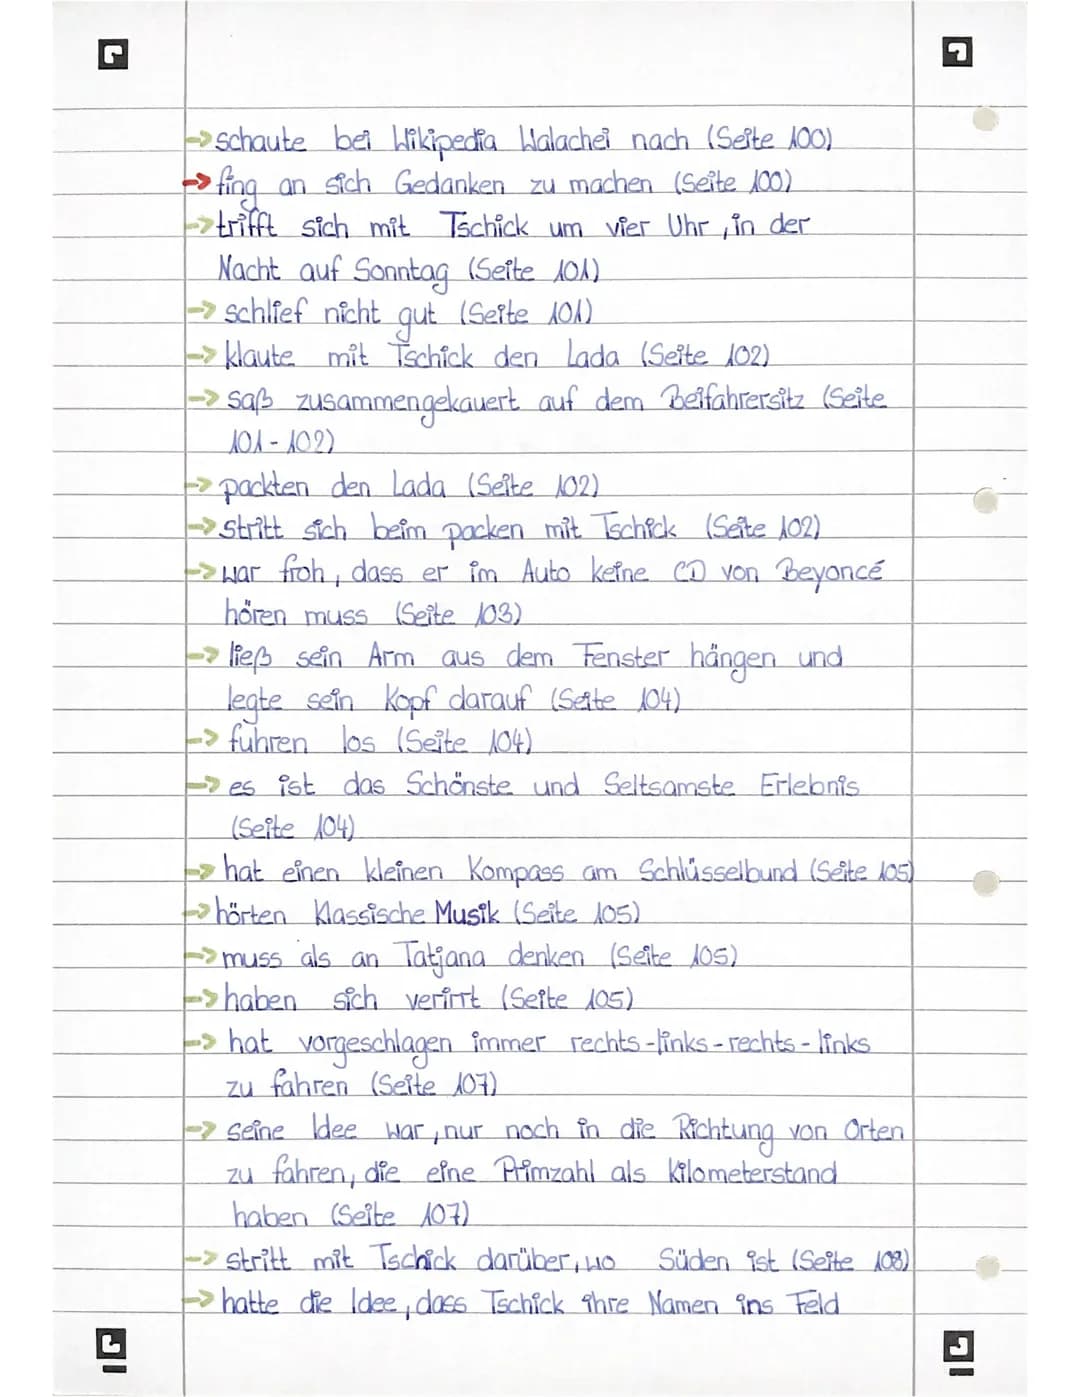 → schaute bei Wikipedia Walachei nach (Seite 100)
→ fing an sich Gedanken zu machen (Seite 100)
→ trifft sich mit Tschick um vier Uhr, in der
Nacht auf Sonntag (Seite 101)
→ schlief nicht gut (Seite 101)
→ klaute mit Tschick den Lada (Seite 102)
→ saß zusammengekauert auf dem Beifahrersitz (Seite
101-102)
→ packten den Lada (Seite 102)
→ stritt sich beim packen mit Tschick (Seite 102)
→ war froh, dass er im Auto keine CD von Beyoncé
hören muss (Seite 103)
→ ließ sein Arm aus dem Fenster hängen und
legte sein Kopf darauf (Seite 104)
→ fuhren los (Seite 104)
→ es ist das Schönste und Seltsamste Erlebnis
(Seite 104)
→ hat einen kleinen Kompass am Schlüsselbund (Seite 105)
→ hörten Klassische Musik (Seite 105)
→ muss als an Tatjana denken (Seite 105)
→ haben sich verirrt (Seite 105)
→ hat vorgeschlagen immer rechts-links-rechts-links
zu fahren (Seite 107)
→ seine Idee war, nur noch in die Richtung von Orten
zu fahren, die eine Primzahl als Kilometerstand
haben (Seite 107)
→ stritt mit Tschick darüber, wo Süden ist (Seite 108)
→ hatte die Idee, dass Tschick ihre Namen ins Feld